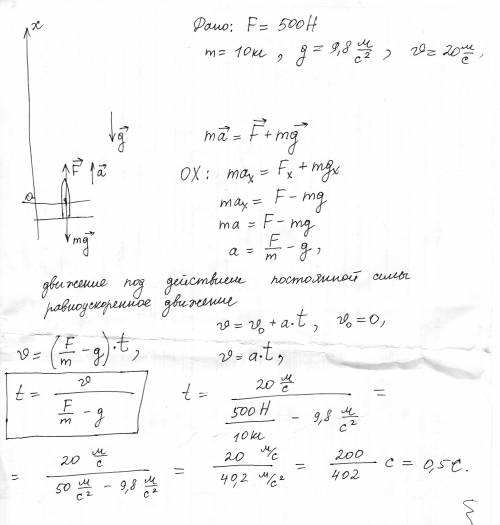 x
Дано: F = 500 Н
m = 10 кг, g = 9,8 м/с², v = 20 м/с.
g⃗
F⃗
a⃗
0
mg⃗
ma⃗ = F⃗ + mg⃗
OX: maₓ = Fₓ + mgₓ
maₓ = F − mg
ma = F − mg
a = F/m − g,
движение под действием постоянной силы
равноускоренное движение
v = v₀ + a·t, v₀ = 0,
v = (F/m − g)·t,
v = a·t,
t = v / (F/m − g)
t = 20 м/с / (500 Н / 10 кг − 9,8 м/с²) =
= 20 м/с / (50 м/с² − 9,8 м/с²) = 20 м/с / 40,2 м/с² = 200/402 с = 0,5 с.